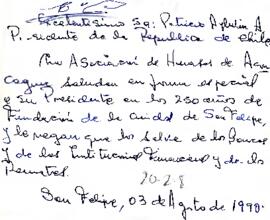 Excelentisimo Sr: Patricio Aylwin A
Presidente de la Republica de Chile
Una Asociación de Huasos de Acon
cagua saludan en forma especial
a su Presidente en los 250 años de
Fundación de la ciudad de San Felipe,
y le ruegan que los salve de los Bancos
y de las Instituciones Financieras y de los
Remates.
20-2-8
San Felipe, 03 de Agosto de 1990.